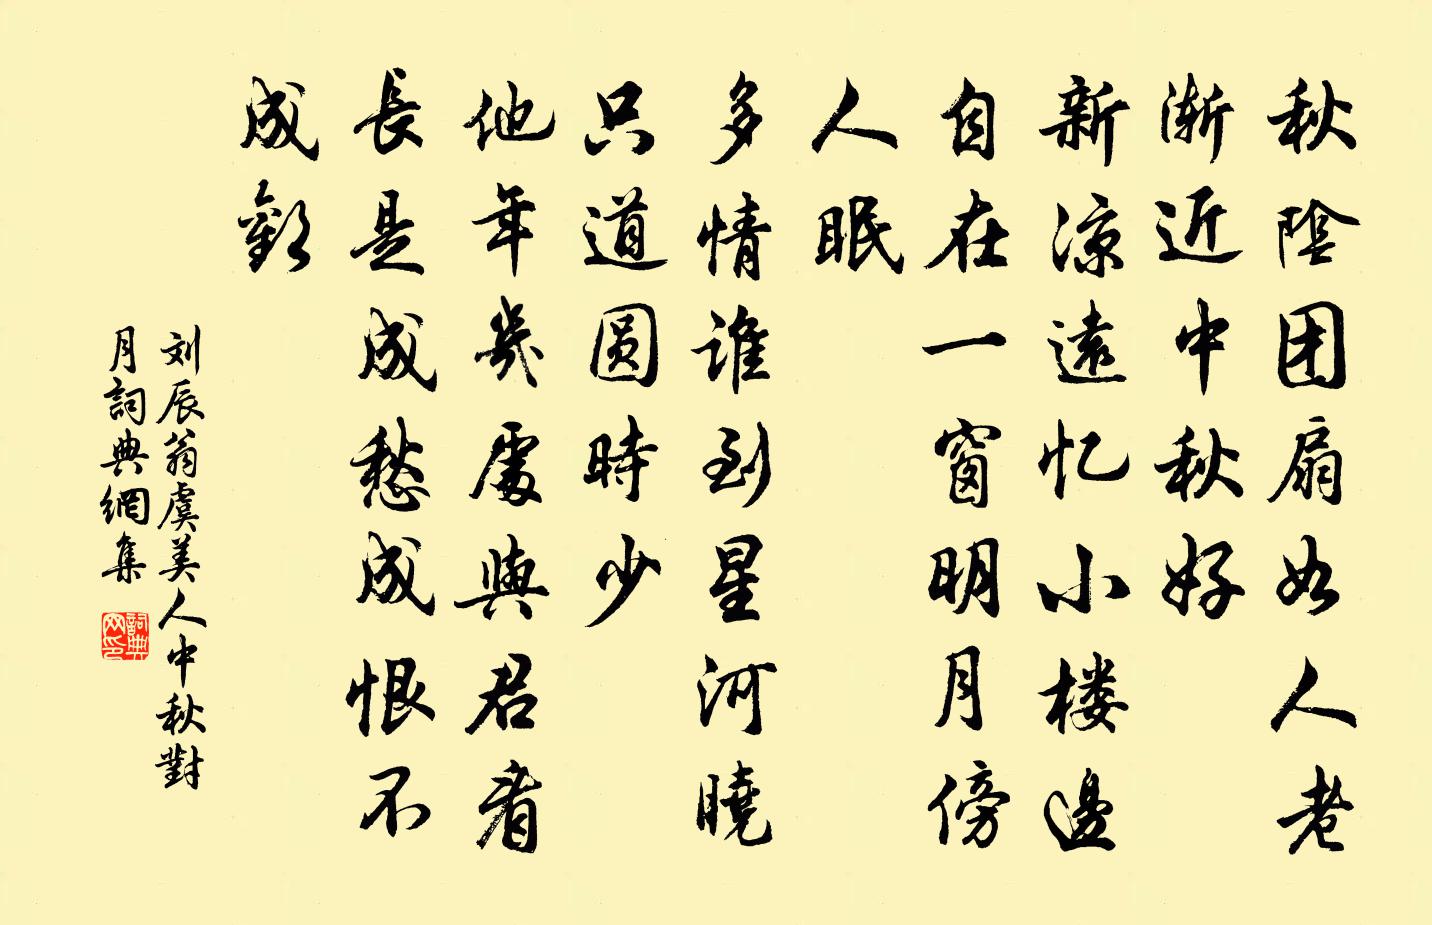 秋陰团扇如人老
渐近中秋好
新凉遠忆小楼邊
自在一窗明月傍
人眠
多情谁到星河曉
只道圆時少
他年幾處與君看
長是成愁成恨不
成歡
刘辰翁虞美人中秋對
月詞典網集
詞典
网印